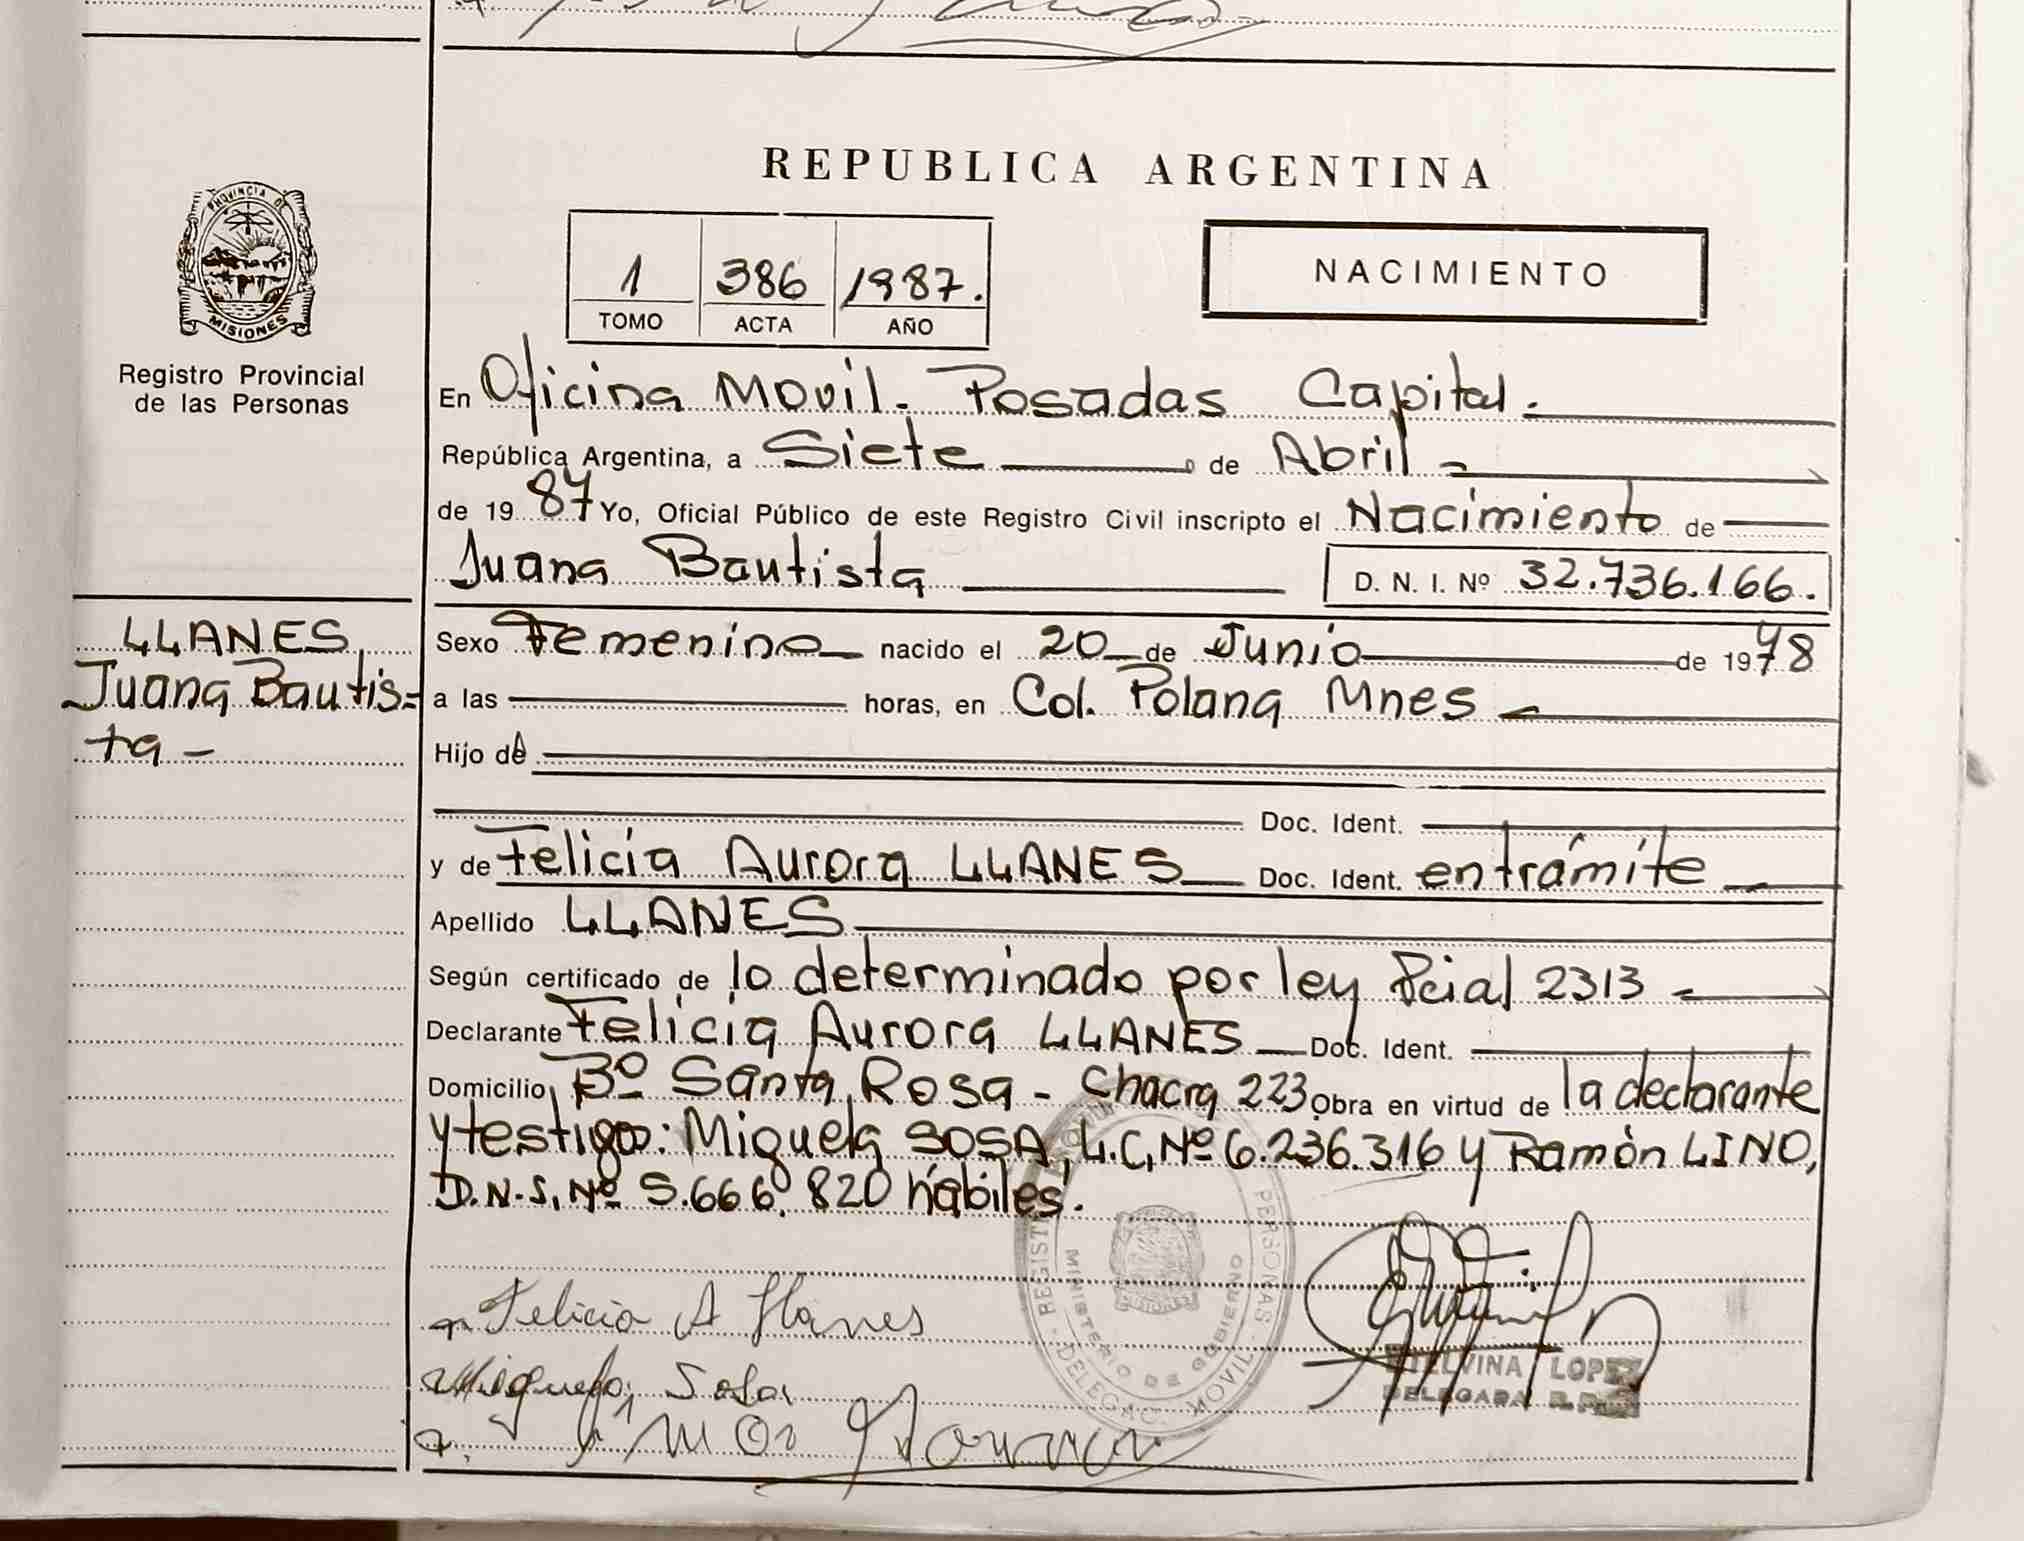 REPUBLICA ARGENTINA
PROVINCIA DE
MISIONES
Registro Provincial
de las Personas
1 386 1987.
TOMO ACTA AÑO
NACIMIENTO
En Oficina Movil. Posadas Capital.
República Argentina, a Siete de Abril
de 1987 Yo, Oficial Público de este Registro Civil inscripto el Nacimiento de
Juana Bautista D. N. I. Nº 32.736.166.
LLANES
Juana Bautis=
ta -
Sexo Femenino nacido el 20 de Junio de 1978
a las horas, en Col. Polana Mnes
Hijo de
Doc. Ident.
y de Felicia Aurora LLANES Doc. Ident. en trámite
Apellido LLANES
Según certificado de lo determinado por ley Pcial 2313
Declarante Felicia Aurora LLANES Doc. Ident.
Domicilio Bº Santa Rosa - Chacra 223 Obra en virtud de la declarante
y testigos: Miguela SOSA, L.C. Nº 6.236.316 y Ramón LINO,
D.N.I. Nº 5.666.820 hábiles.
Felicia A Llanes
Miguela Sosa
REGISTRO PERSONAS - DELEGAC. MOVIL
MINISTERIO DE GOBIERNO
ELVINA LOPEZ
DELEGADA R.P.